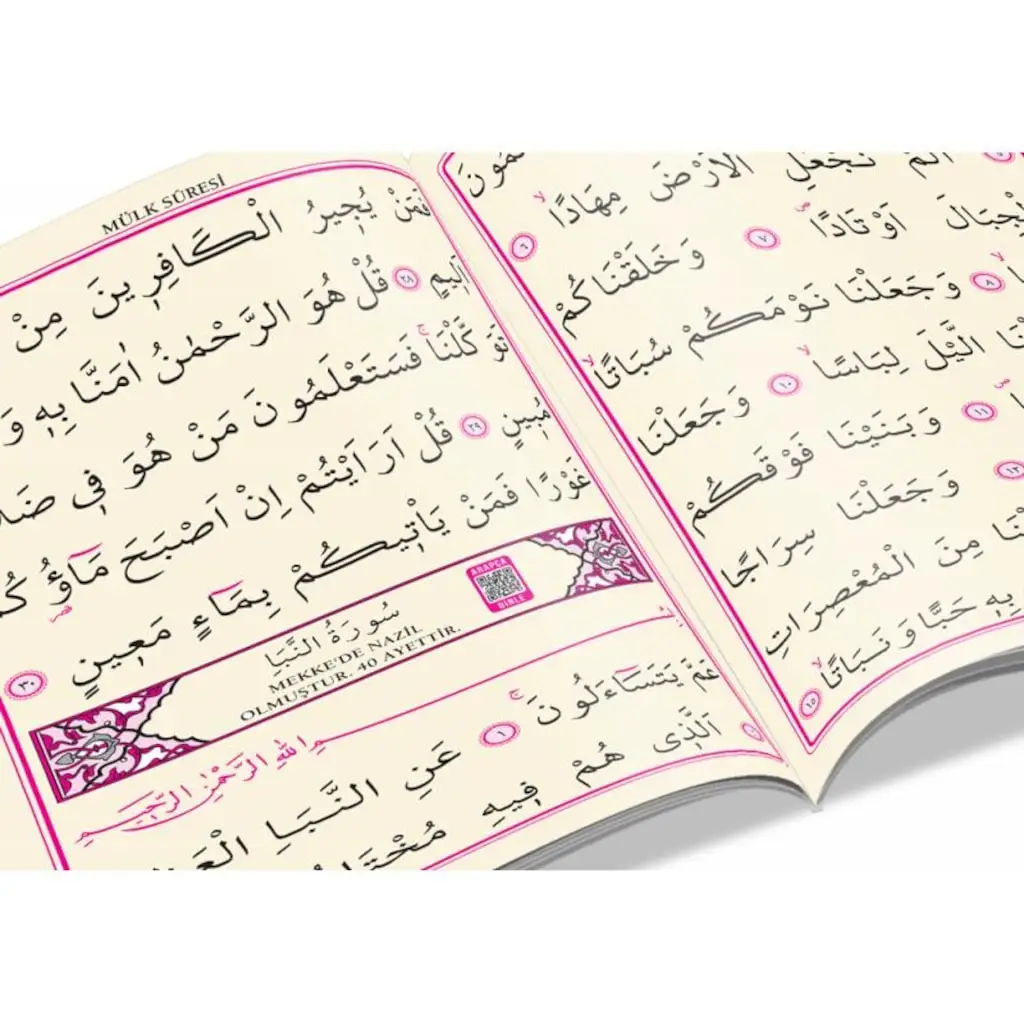 MÜLK SÛRESİ
فَمَنْ يُجِيرُ الْكَافِرِينَ مِنْ
اَلِيمٍ ٢٨ قُلْ هُوَ الرَّحْمٰنُ اٰمَنَّا بِهٖ وَ
تَوَكَّلْنَاۚ فَسَتَعْلَمُونَ مَنْ هُوَ فٖى
مُبٖينٍ ٢٩ قُلْ اَرَاَيْتُمْ اِنْ اَصْبَحَ مَٓاؤُ۬
غَوْرًا فَمَنْ يَاْتٖيكُمْ بِمَٓاءٍ مَعٖينٍ ٣٠
ARAPÇA
سُورَةُ النَّبَاِ
MEKKE'DE NAZİL
OLMUŞTUR. 40 AYETTİR.
بِسْمِ اللّٰهِ الرَّحْمٰنِ الرَّحٖيمِ
عَمَّ يَتَسَٓاءَلُونَۚ ١ عَنِ النَّبَاِ
اَلَّذٖى هُمْ فٖيهِ
اَلَمْ نَجْعَلِ الْاَرْضَ مِهَادًاۙ ٦
اَوْتَادًاۖ ٧ وَخَلَقْنَاكُمْ
٨ وَجَعَلْنَا نَوْمَكُمْ سُبَاتًاۙ
الَّيْلَ لِبَاسًاۙ ١٠ وَجَعَلْنَا
١١ وَبَنَيْنَا فَوْقَكُمْ
١٢ وَجَعَلْنَا سِرَاجًا
مِنَ الْمُعْصِرَاتِ
بِهٖ حَبًّا وَنَبَاتًاۙ ١٥